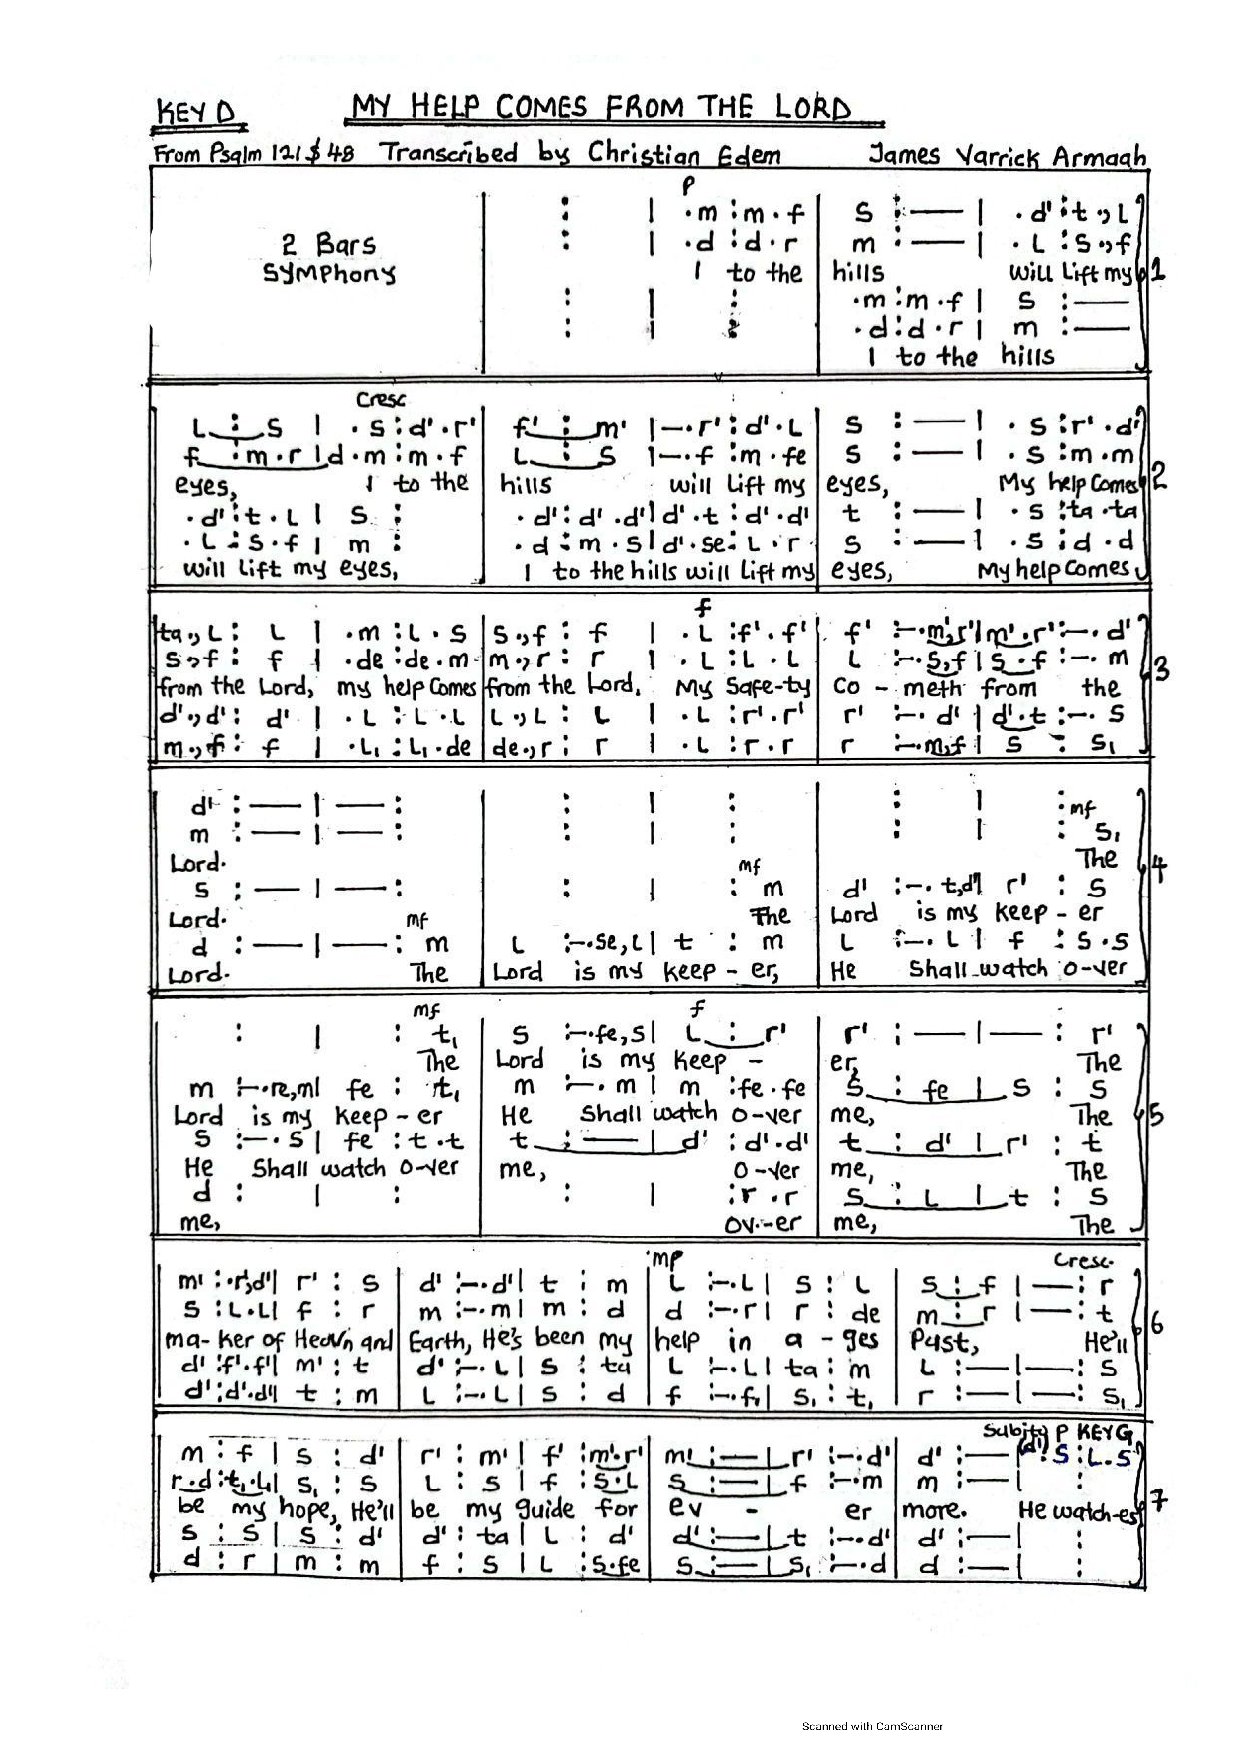 KEY D MY HELP COMES FROM THE LORD
From Psalm 121 $ 48 Transcribed by Christian Edem James Varrick Armaah
P
: | .m :m.f | s :— | .d' :t.,L
2 Bars : | .d :d.r | m :— | .L :s.,f
SYMPHONY I to the hills will Lift my 1
: | : | .m :m.f | s :—
: | : | .d :d.r | m :—
I to the hills
Cresc
L :s | .s :d'.r' | f' :m' |—.r' :d'.L | s :— | .s :r'.d'
f :m.r |d.m :m.f | L :s |—.f :m.fe | s :— | .s :m.m
eyes, I to the hills will Lift my eyes, My help Comes 2
.d' :t.L | s : | .d' :d'.d' |d'.t :d'.d' | t :— | .s :ta.ta
.L :s.f | m : | .d :m.s |d'.se :L.r | s :— | .s :d.d
will Lift my eyes, I to the hills will Lift my eyes, My help Comes
f
ta.,L : L | .m :L.s | s.,f : f | .L :f'.f' | f' :—.m',r' |m'.r' :—.d'
s.,f : f | .de :de.m | m.,r : r | .L :L.L | L :—.s,f |s.f :—.m
from the Lord, my help Comes from the Lord, My Safe-ty Co - meth from the 3
d'.,d' : d' | .L :L.L | L.,L : L | .L :r'.r' | r' :—.d' |d'.t :—.s
m.,f : f | .L₁ :L₁.de | de.,r : r | .L :r.r | r :—.m,f | s : s₁
d' :— |— : | : | : | : | : mf
m :— |— : | : | : | : | : s₁
Lord. mf The 4
s :— |— : | : | : m | d' :—.t,d' | r' : s
Lord. mf The Lord is my Keep - er
d :— |— : m | L :—.se,L | t : m | L :—.L | f :s.s
Lord. The Lord is my keep - er, He Shall watch o-ver
mf f
: | : t₁ | s :—.fe,s | L : r' | r' :— |— : r'
The Lord is my Keep - er, The
m :—.re,m | fe : t₁ | m :—.m | m :fe.fe | s : fe | s : s
Lord is my Keep - er He Shall watch o-ver me, The 5
s :—.s | fe :t.t | t :— | d' :d'.d' | t : d' | r' : t
He Shall watch o-ver me, o-ver me, The
d : | : | : | :r.r | s : L | t : s
me, Ov.-er me, The
mp Cresc.
m' :.r',d' | r' : s | d' :—.d' | t : m | L :—.L | s : L | s : f |— : r
s :L.L | f : r | m :—.m | m : d | d :—.r | r : de | m : r |— : t
ma-ker of Heav'n and Earth, He's been my help in a - ges Past, He'll 6
d' :f'.f' | m' : t | d' :—.L | s : ta | L :—.L | ta : m | L :— |— : s
d' :d'.d' | t : m | L :—.L | s : d | f :—.f₁ | s₁ : t₁ | r :— |— : s₁
Subito P KEY G
m : f | s : d' | r' : m' | f' :m'.r' | m' :— | r' :—.d' | d' :— | (d').s :L.s
r.d :t₁.L₁ | s₁ : s | L : s | f :s.L | s :— | f :—.m | m :— | :
be my hope, He'll be my guide for ev - er more. He watch-es 7
s : s | s : d' | d' : ta | L : d' | d' :— | t :—.d' | d' :— | :
d : r | m : m | f : s | L :s.fe | s :— | s₁ :—.d | d :— | :
Scanned with CamScanner